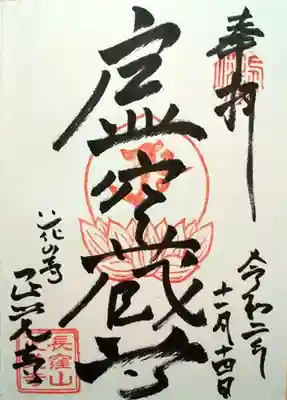 奉拝
虚空蔵尊
令和二年
十一月十四日
花の寺
正覚寺
長窪山